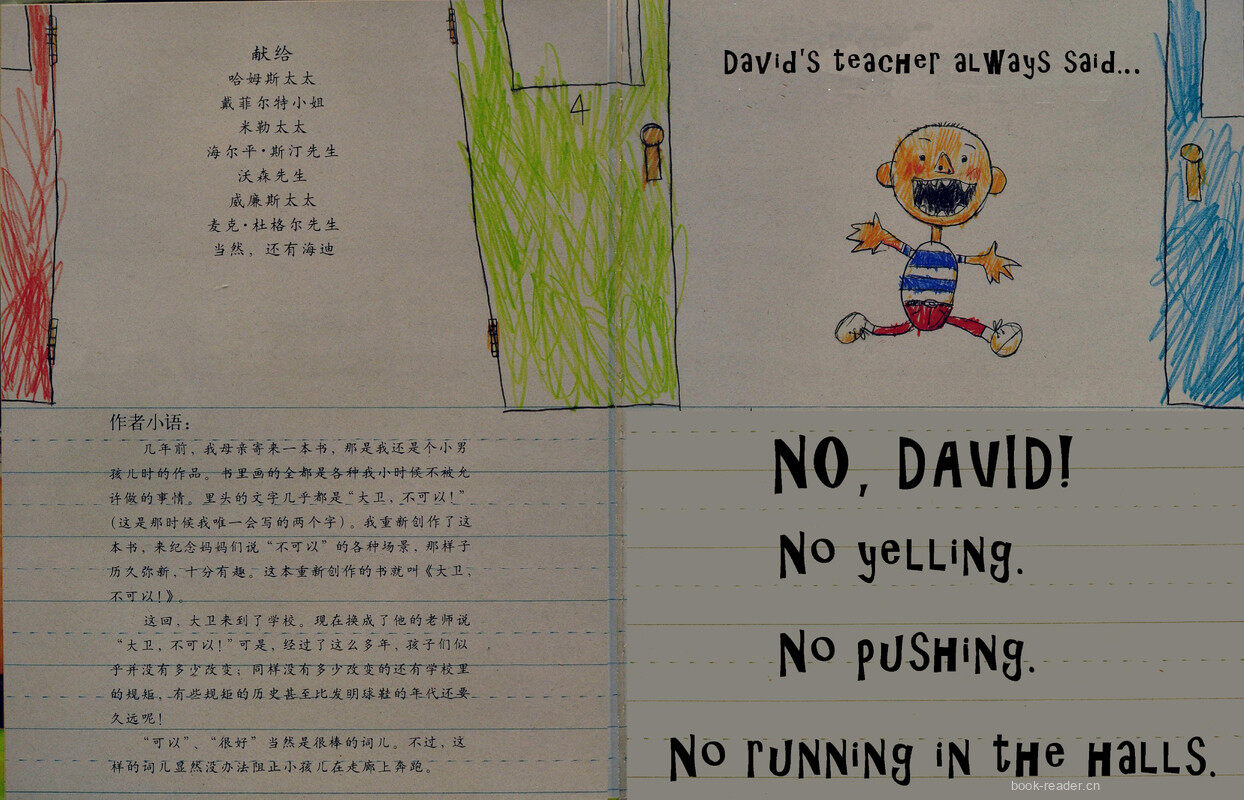 献给
哈姆斯太太
戴菲尔特小姐
米勒太太
海尔平·斯汀先生
沃森先生
威廉斯太太
麦克·杜格尔先生
当然，还有海迪
4
作者小语：
几年前，我母亲寄来一本书，那是我还是个小男
孩儿时的作品。书里画的全都是各种我小时候不被允
许做的事情。里头的文字几乎都是“大卫，不可以！”
（这是那时候我唯一会写的两个字）。我重新创作了这
本书，来纪念妈妈们说“不可以”的各种场景，那样子
历久弥新，十分有趣。这本重新创作的书就叫《大卫，
不可以！》。
这回，大卫来到了学校。现在换成了他的老师说
“大卫，不可以！”可是，经过了这么多年，孩子们似
乎并没有多少改变；同样没有多少改变的还有学校里
的规矩，有些规矩的历史甚至比发明球鞋的年代还要
久远呢！
“可以”、“很好”当然是很棒的词儿。不过，这
样的词儿显然没办法阻止小孩儿在走廊上奔跑。
David's teacher always said...
NO, DAVID!
No yelling.
No pushing.
No running in the halls.
book-reader.cn